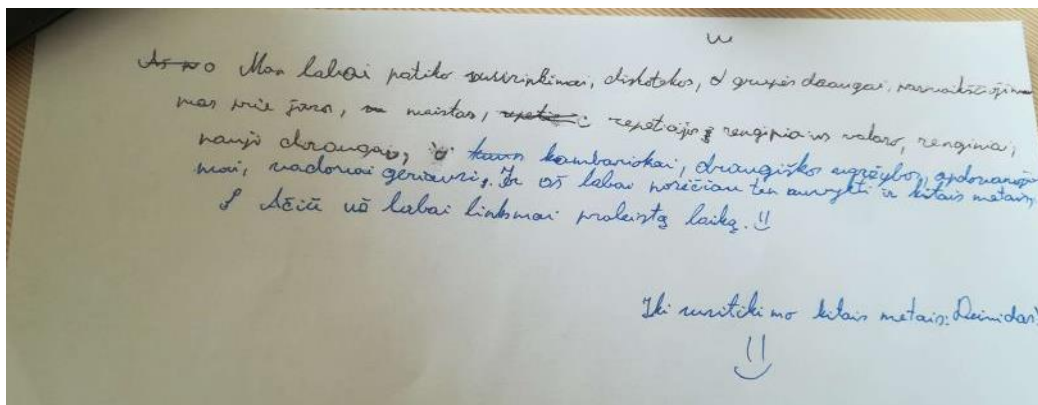 Man labai patiko susirinkimai, diskotekos, grupės draugai, pasivaikščioji
mas prie jūros, maistas, renginiai vakaro, renginiai,
nauji draugai, kambariokai, draugiškos rungtybos, apdovanoji
mai, vadovai geriausi. Ir aš labai norėčiau ten nuvykti ir kitais metais,
Ačiū už labai linksmai praleistą laiką.
Iki susitikimo kitais metais: Deimidas